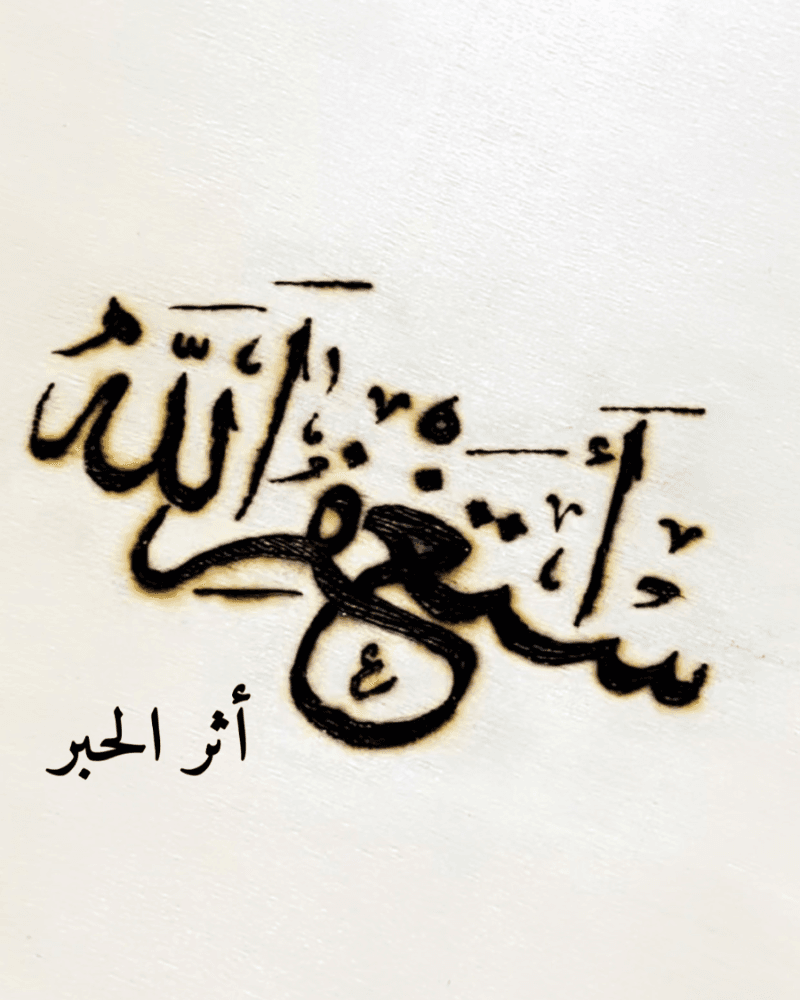 أستغفر الله
أثر الحبر